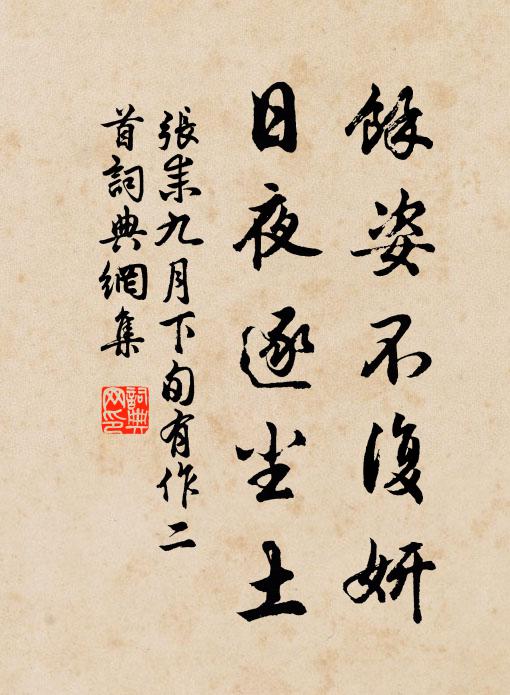 餘姿不復妍
日夜逐尘土
張耒九月下旬有作二
首詞典網集
詞典网印